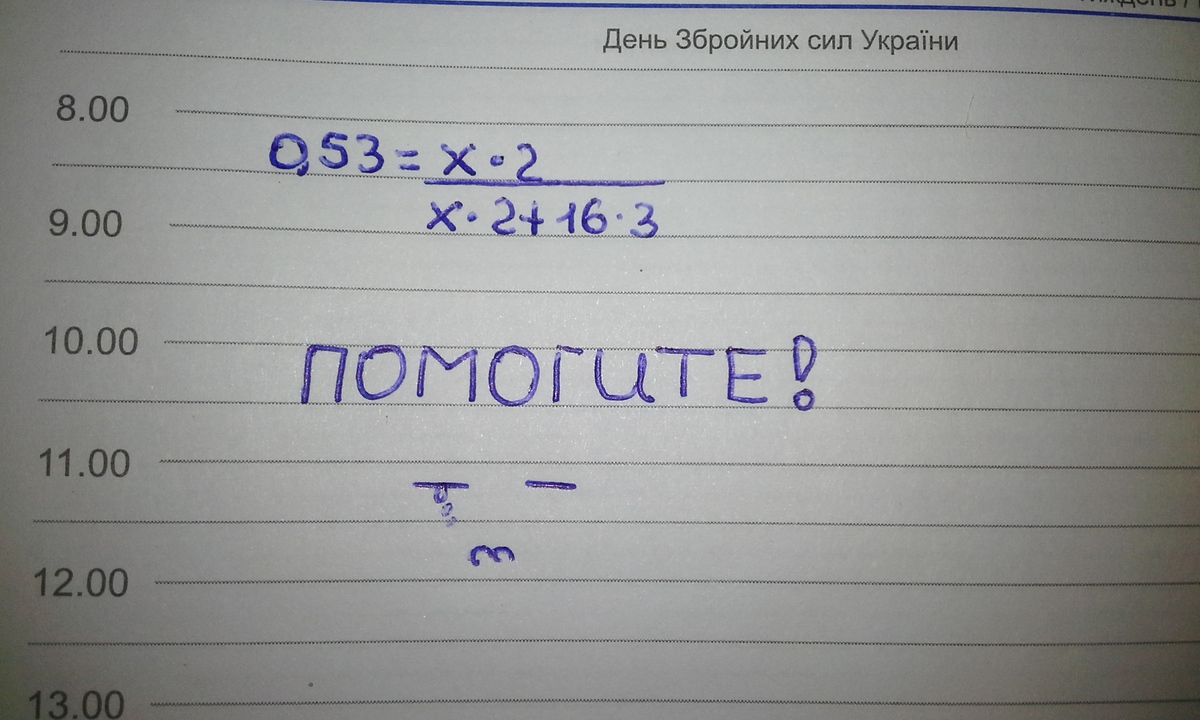 День Збройних сил України
8.00
0,53 = x · 2
x · 2 + 16 · 3
9.00
10.00
ПОМОГИТЕ!
11.00
12.00
13.00